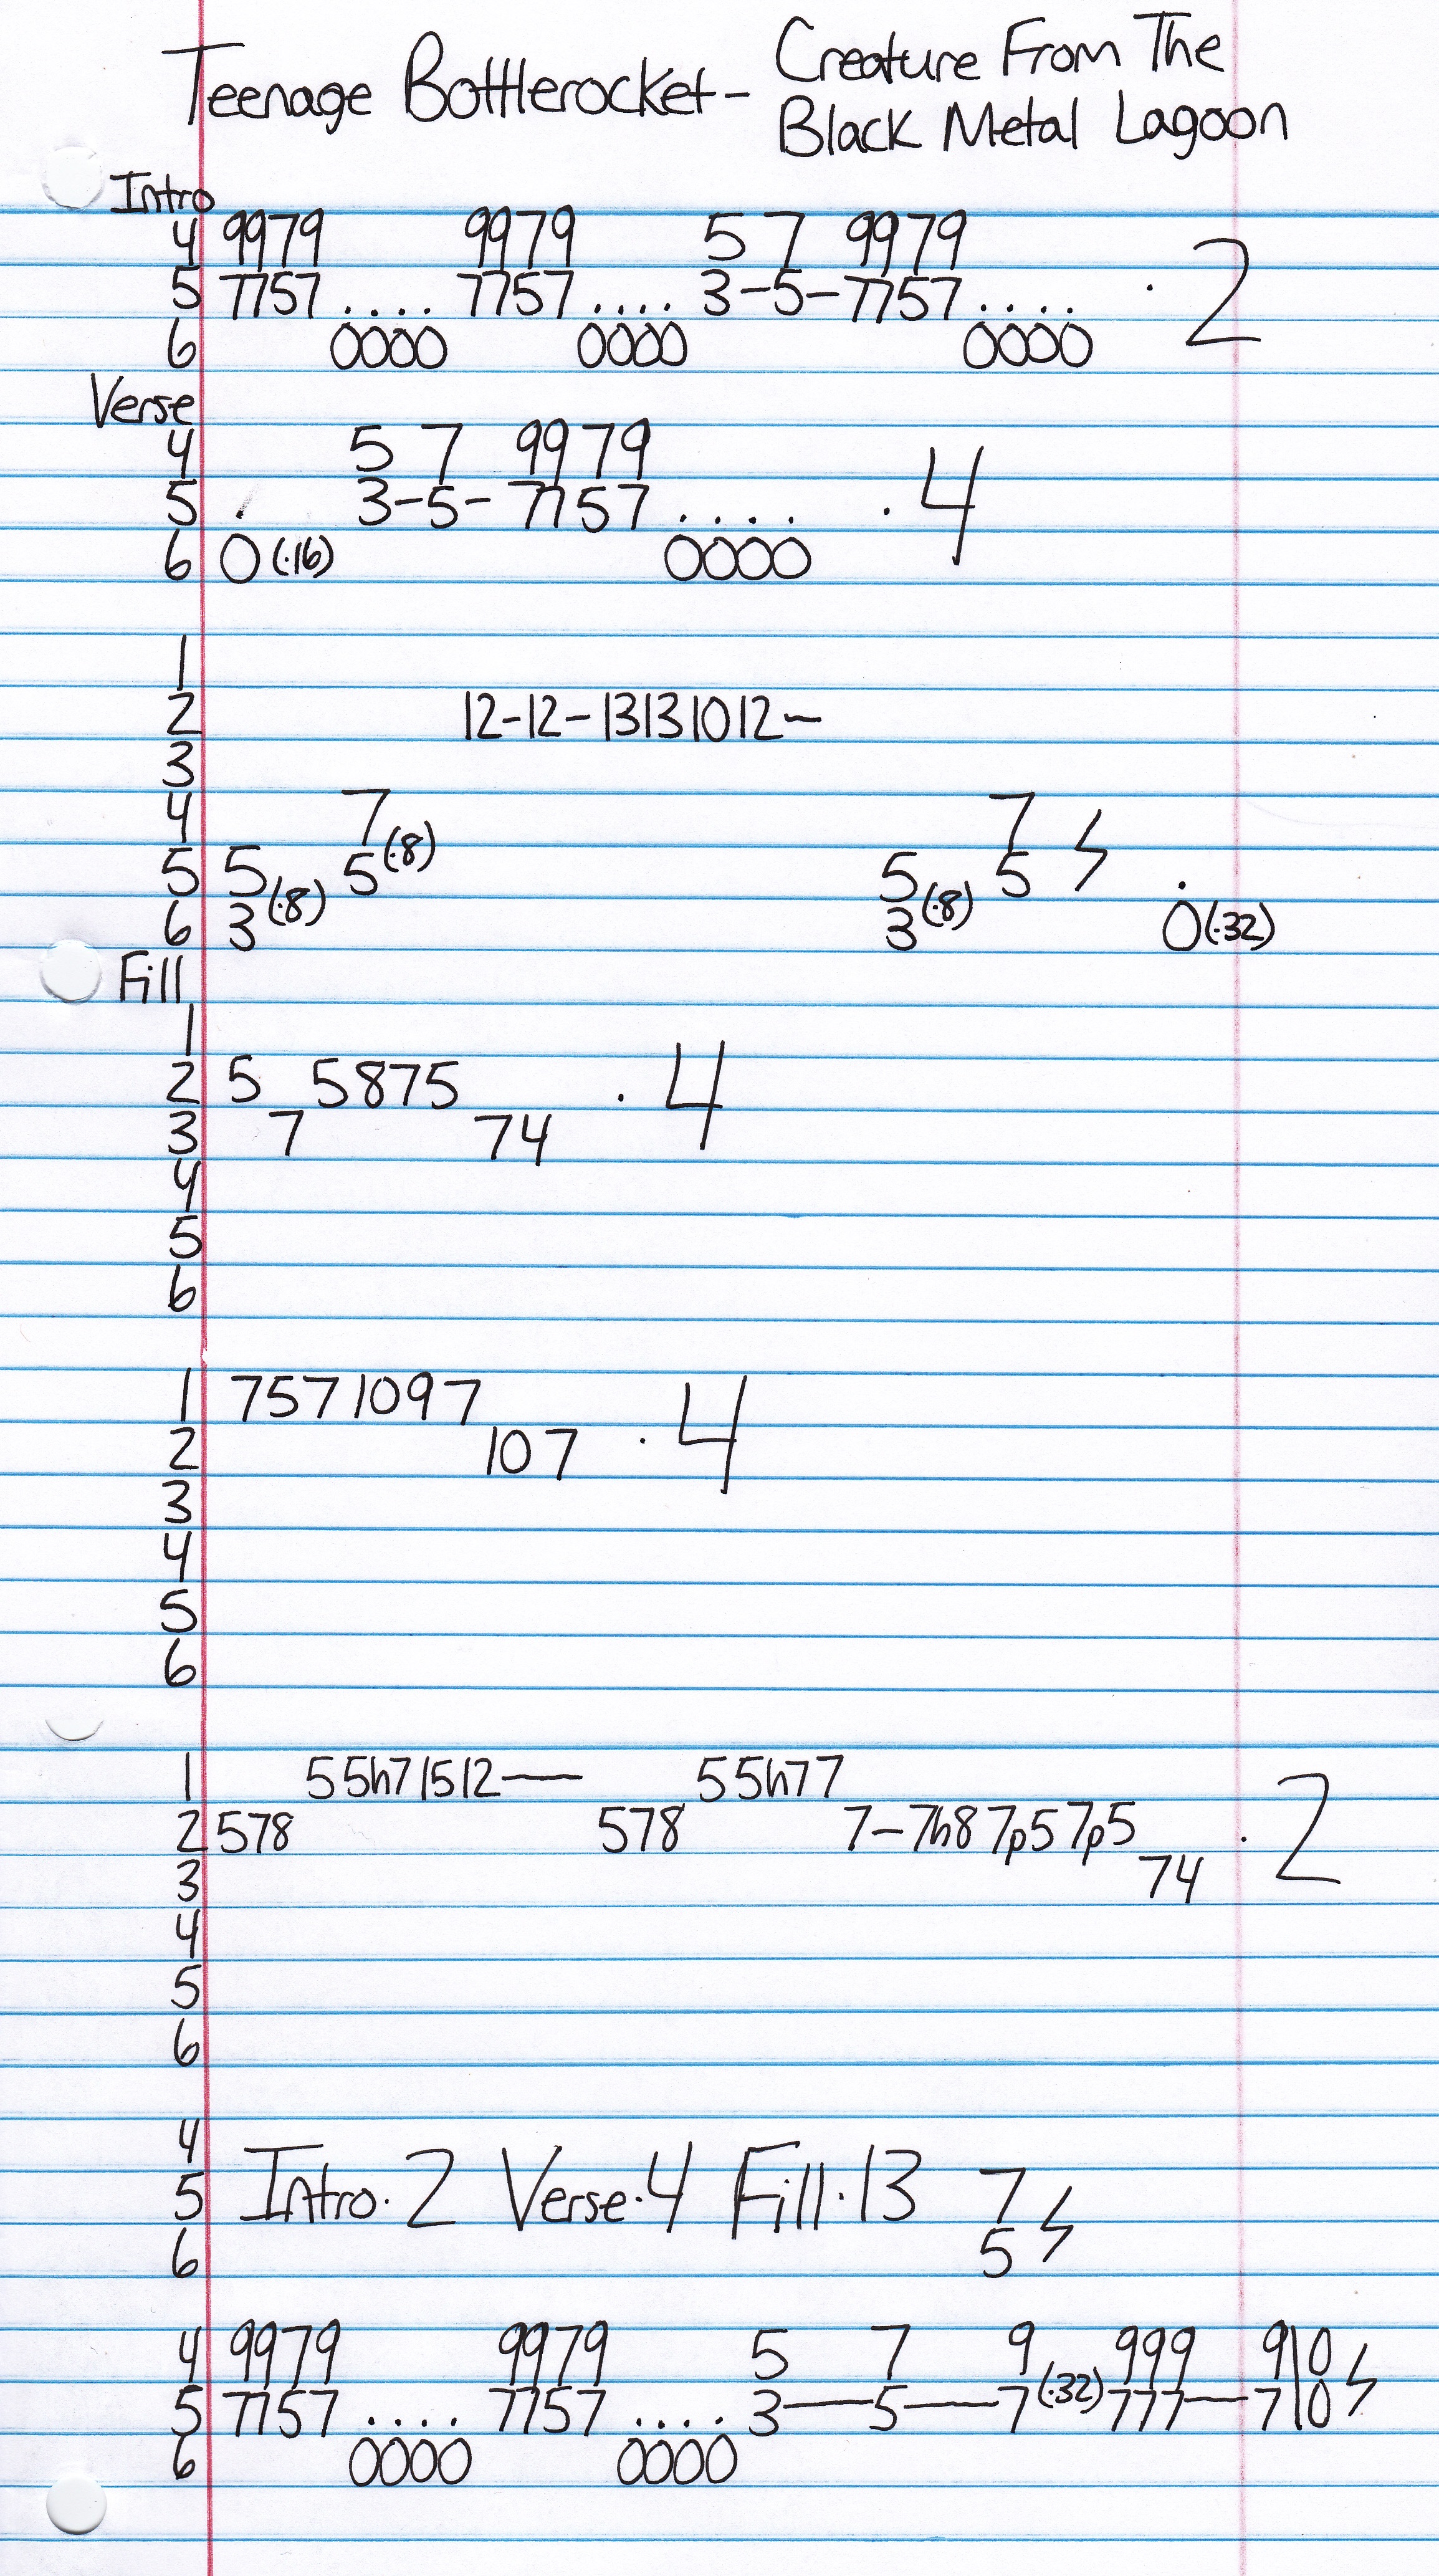 Teenage Bottlerocket - Creature From The
Black Metal Lagoon
Intro
4 9979 9979 5 7 9979
5 7757 .... 7757 .... 3-5-7757 .... · 2
6 0000 0000 0000
Verse
4 5 7 9979
5 . 3-5-7757 .... · 4
6 0(·16) 0000
1
2 12-12-13131012-
3
4 7 7
5 5(·8) 5(·8) 5(·8) 5 .
6 3 3 0(·32)
Fill
1
2 5 5875 · 4
3 7 74
4
5
6
1 7571097
2 107 · 4
3
4
5
6
1 55h71512— 55h77
2 578 578 7-7h87p57p5 · 2
3 74
4
5
6
4
5 Intro·2 Verse·4 Fill·13 7
6 5
4 9979 9979 5 7 9 999 9 10
5 7757 .... 7757 .... 3—5—7(·32) 777—7 10
6 0000 0000